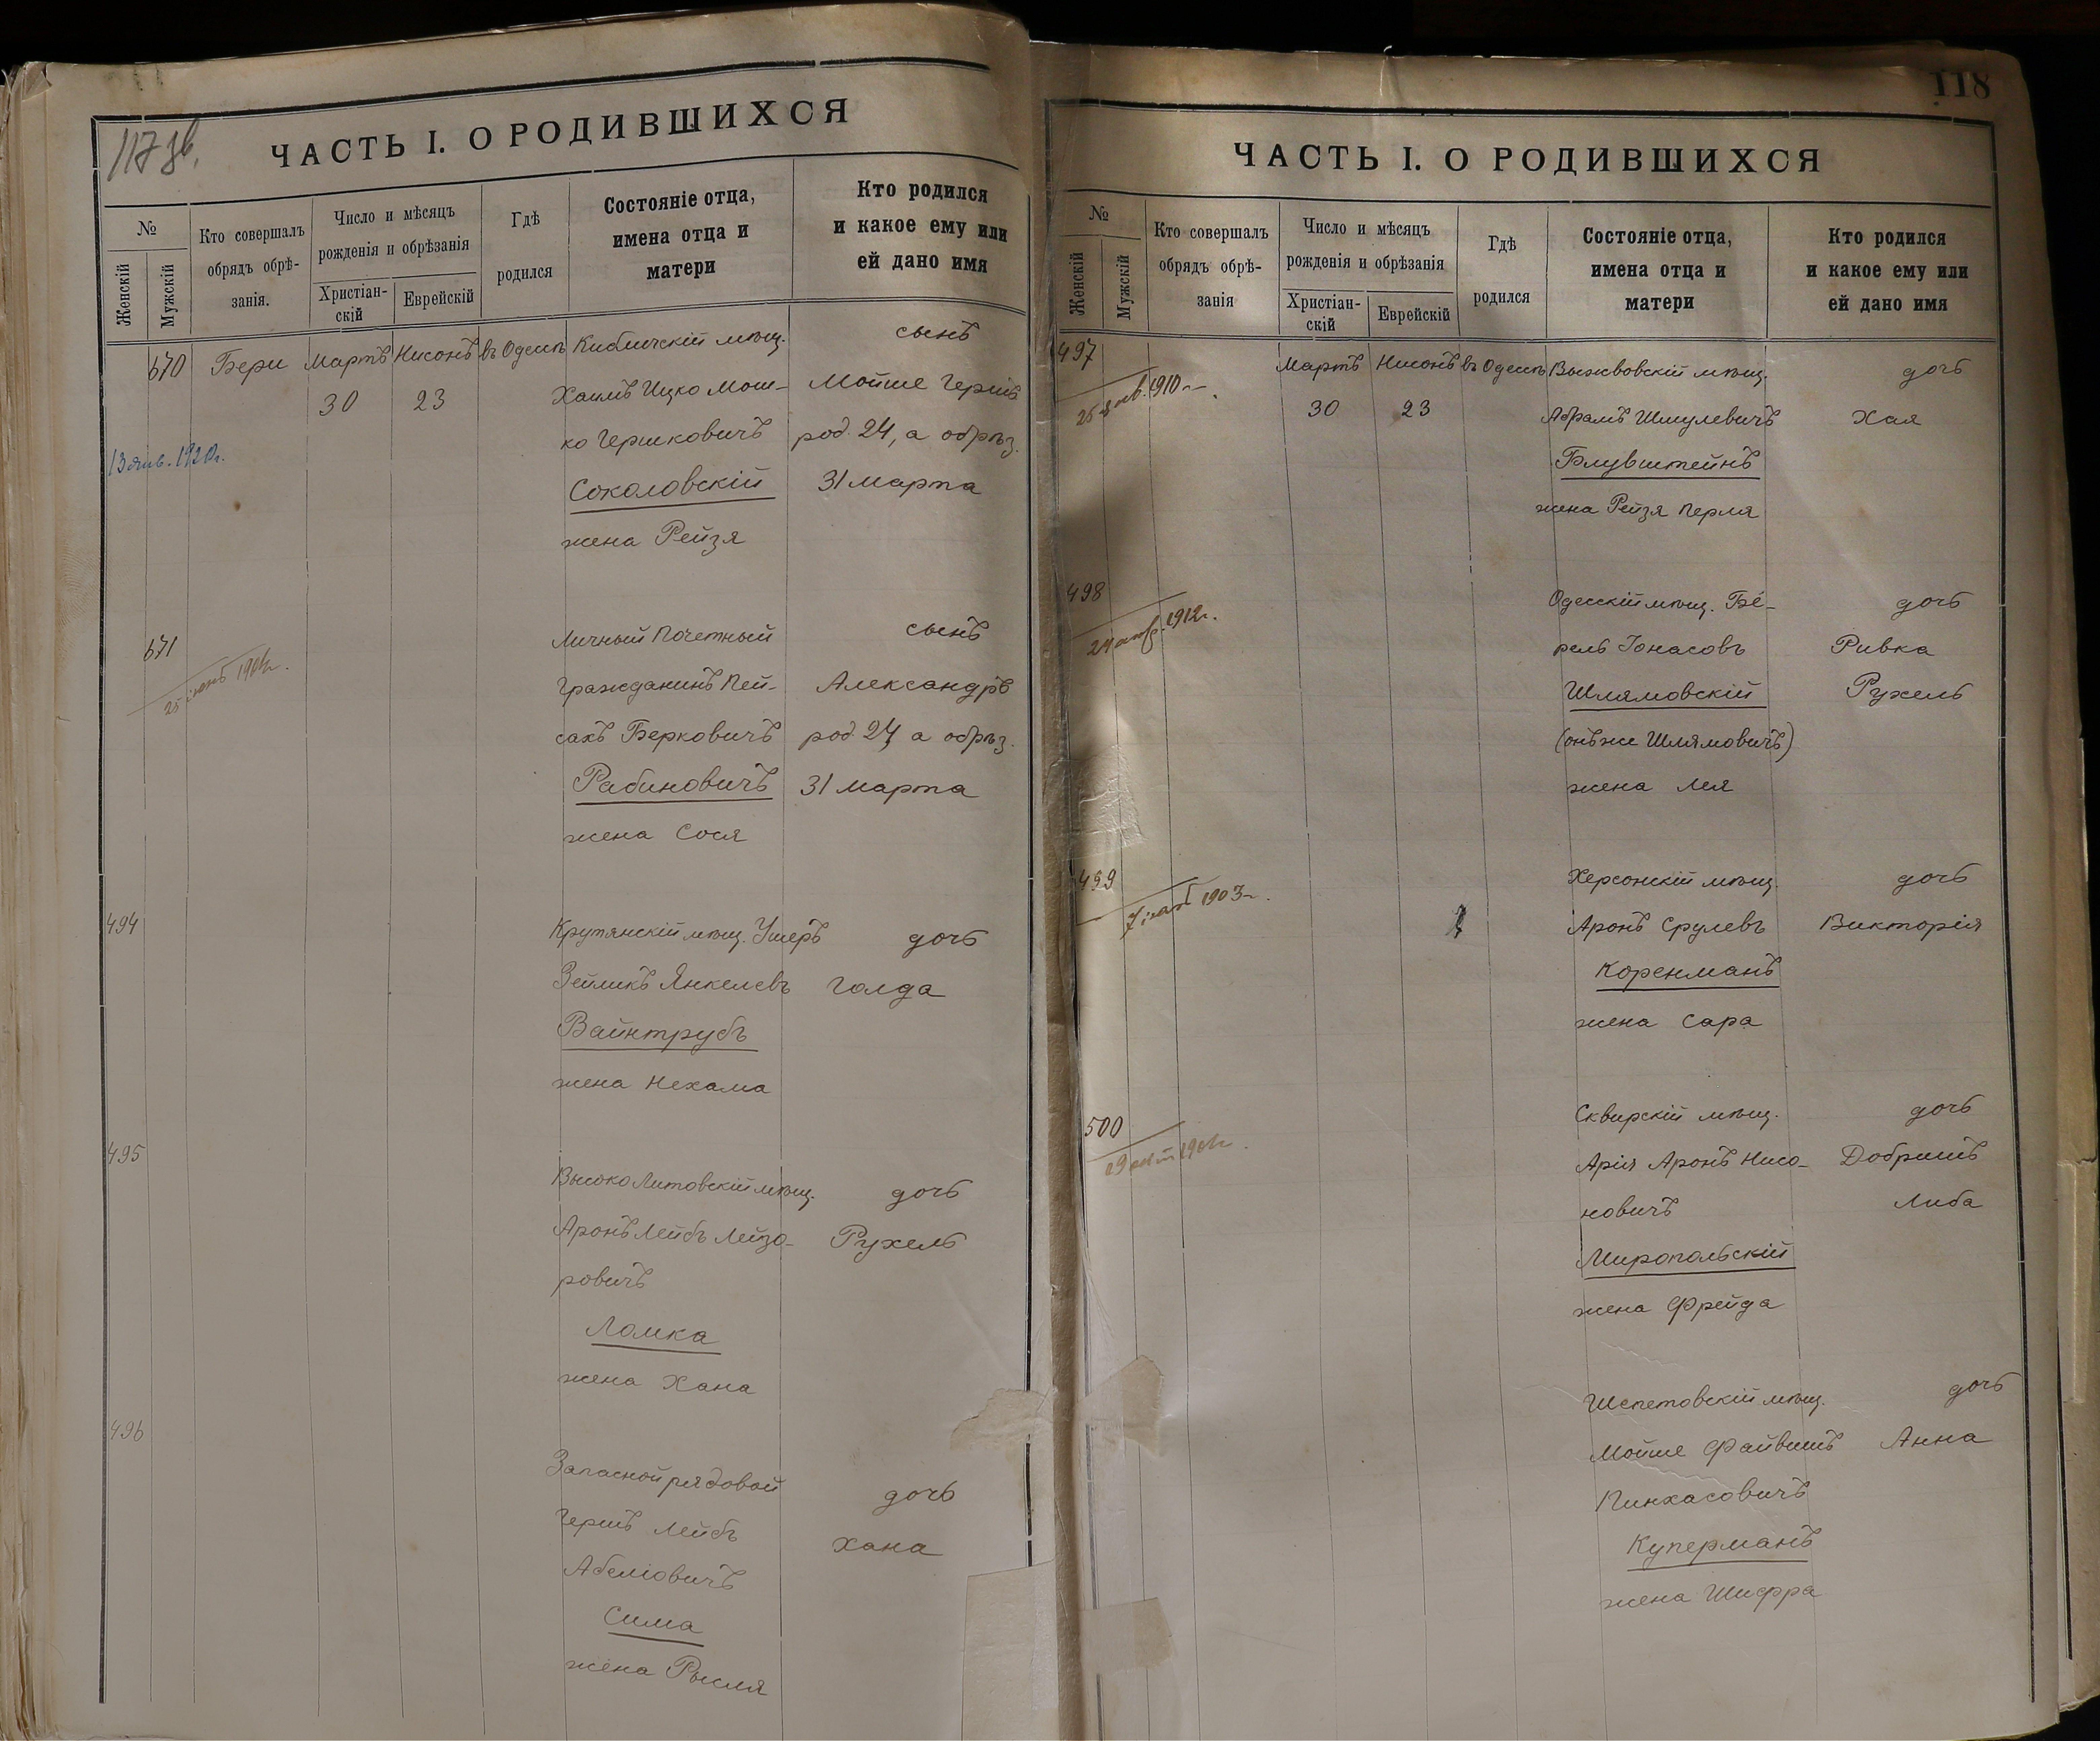 117 зв.
ЧАСТЬ I. О РОДИВШИХСЯ
№
Женскій
Мужскій
Кто совершалъ
обрядъ обрѣ-
занія.
Число и мѣсяцъ
рожденія и обрѣзанія
Христіан-
скій
Еврейскій
Гдѣ
родился
Состояніе отца,
имена отца и
матери
Кто родился
и какое ему или
ей дано имя
670 Бери Мартъ Нисонъ въ Одессѣ Кибличскій мѣщ. сынъ
30 23 Хаимъ Ицко Мош- Мойше Гершъ
ко Гершковичъ род. 24, а обрѣз.
13 янв. 1920г.
Соколовскій 31 Марта
жена Рейзя
671 Личный Почетный сынъ
Гражданинъ Пей- Александръ
сахъ Берковичъ род. 24 а обрѣз.
Рабиновичъ 31 Марта
жена Сося
494 Крутянскій мѣщ. Ушеръ дочь
Зейликъ Янкелевъ Голда
Вайнтрубъ
жена Нехама
495 Высоко Литовскій мѣщ. дочь
Аронъ Лейбъ Лейзо- Рухель
ровичъ
Ломка
жена Хана
496 Запасной рядовой дочь
Гершъ Лейбъ Хана
Абеліовичъ
Сима
жена Рысля
118
ЧАСТЬ I. О РОДИВШИХСЯ
№
Женскій
Мужскій
Кто совершалъ
обрядъ обрѣ-
занія
Число и мѣсяцъ
рожденія и обрѣзанія
Христіан-
скій
Еврейскій
Гдѣ
родился
Состояніе отца,
имена отца и
матери
Кто родился
и какое ему или
ей дано имя
497 Мартъ Нисонъ въ Одессѣ Выжвовскій мѣщ. дочь
1910
30 23 Абрамъ Шмулевичъ Хая
Блувштейнъ
жена Рейзя Перля
498 Одесскій мѣщ. Бе- дочь
1912г.
рель Іонасовъ Ривка
Шлямовскій Рухель
(онъ же Шлямовичъ)
жена Лея
499 Херсонскій мѣщ. дочь
7 1903г.
Аронъ Срулевъ Викторія
Коренманъ
жена Сара
500 Сквирскій мѣщ. дочь
Арія Аронъ Нисо- Добришъ
новичъ Либа
Миропольскій
жена Фрейда
Шепетовскій мѣщ. дочь
Мойше Файвишъ Анна
Пинхасовичъ
Куперманъ
жена Шифра